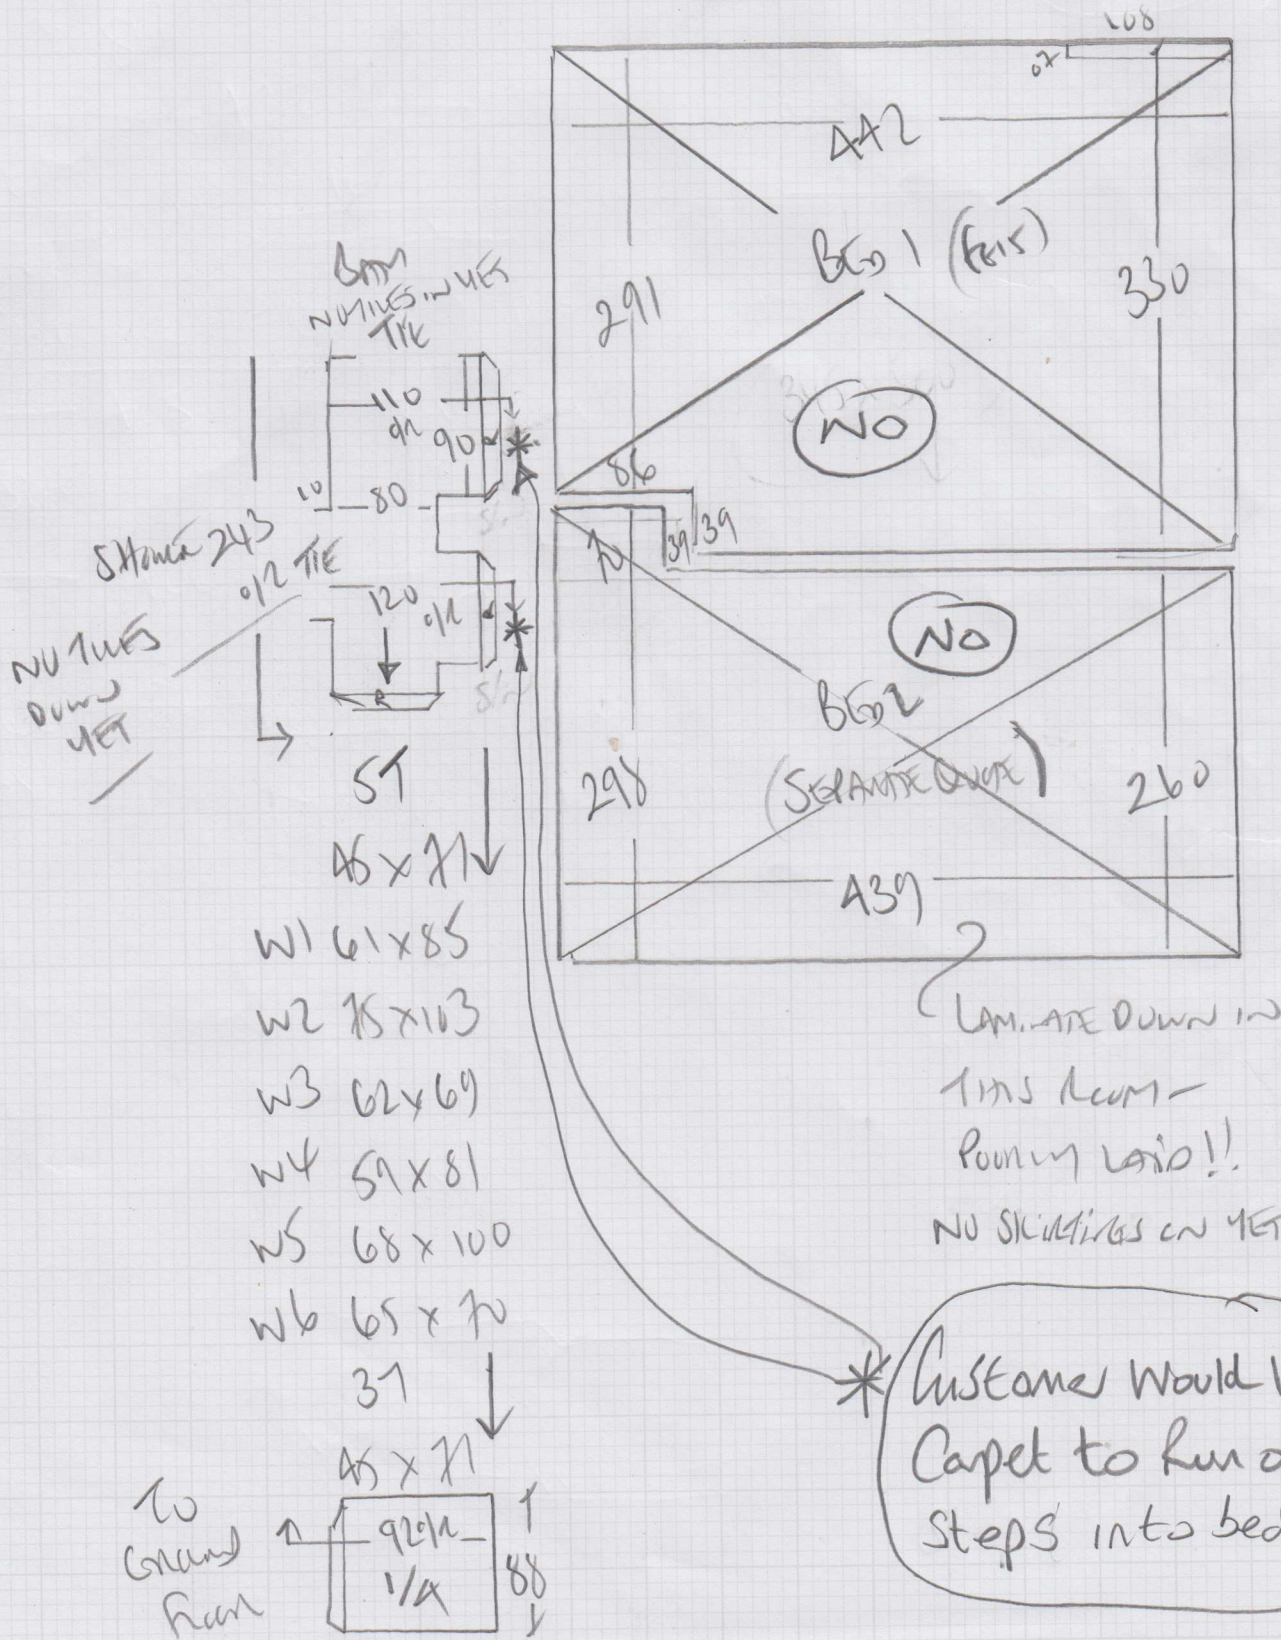 108
07
442
BED 1 (
291
330
NO
86
39
39
70
NO
BED 2
(SEPARATE QUOTE)
298
260
439
LAMINATE DOWN IN
THIS ROOM -
POORLY LAID!!
NO SKIRTINGS ON YET
BATH
NO TILES IN YET
TIE
110
O/R
90
10
80
SHOWER 243
O/R TIE
120
O/R
R
NO TILES
DOWN
YET
5T
45 x 71
W1 61 x 85
W2 75 x 103
W3 62 x 69
W4 59 x 81
W5 68 x 100
W6 65 x 70
3T
45 x 71
TO
GROUND
FLOOR
92 O/R
1/4
88
* Customer Would
Carpet to Run
Steps into